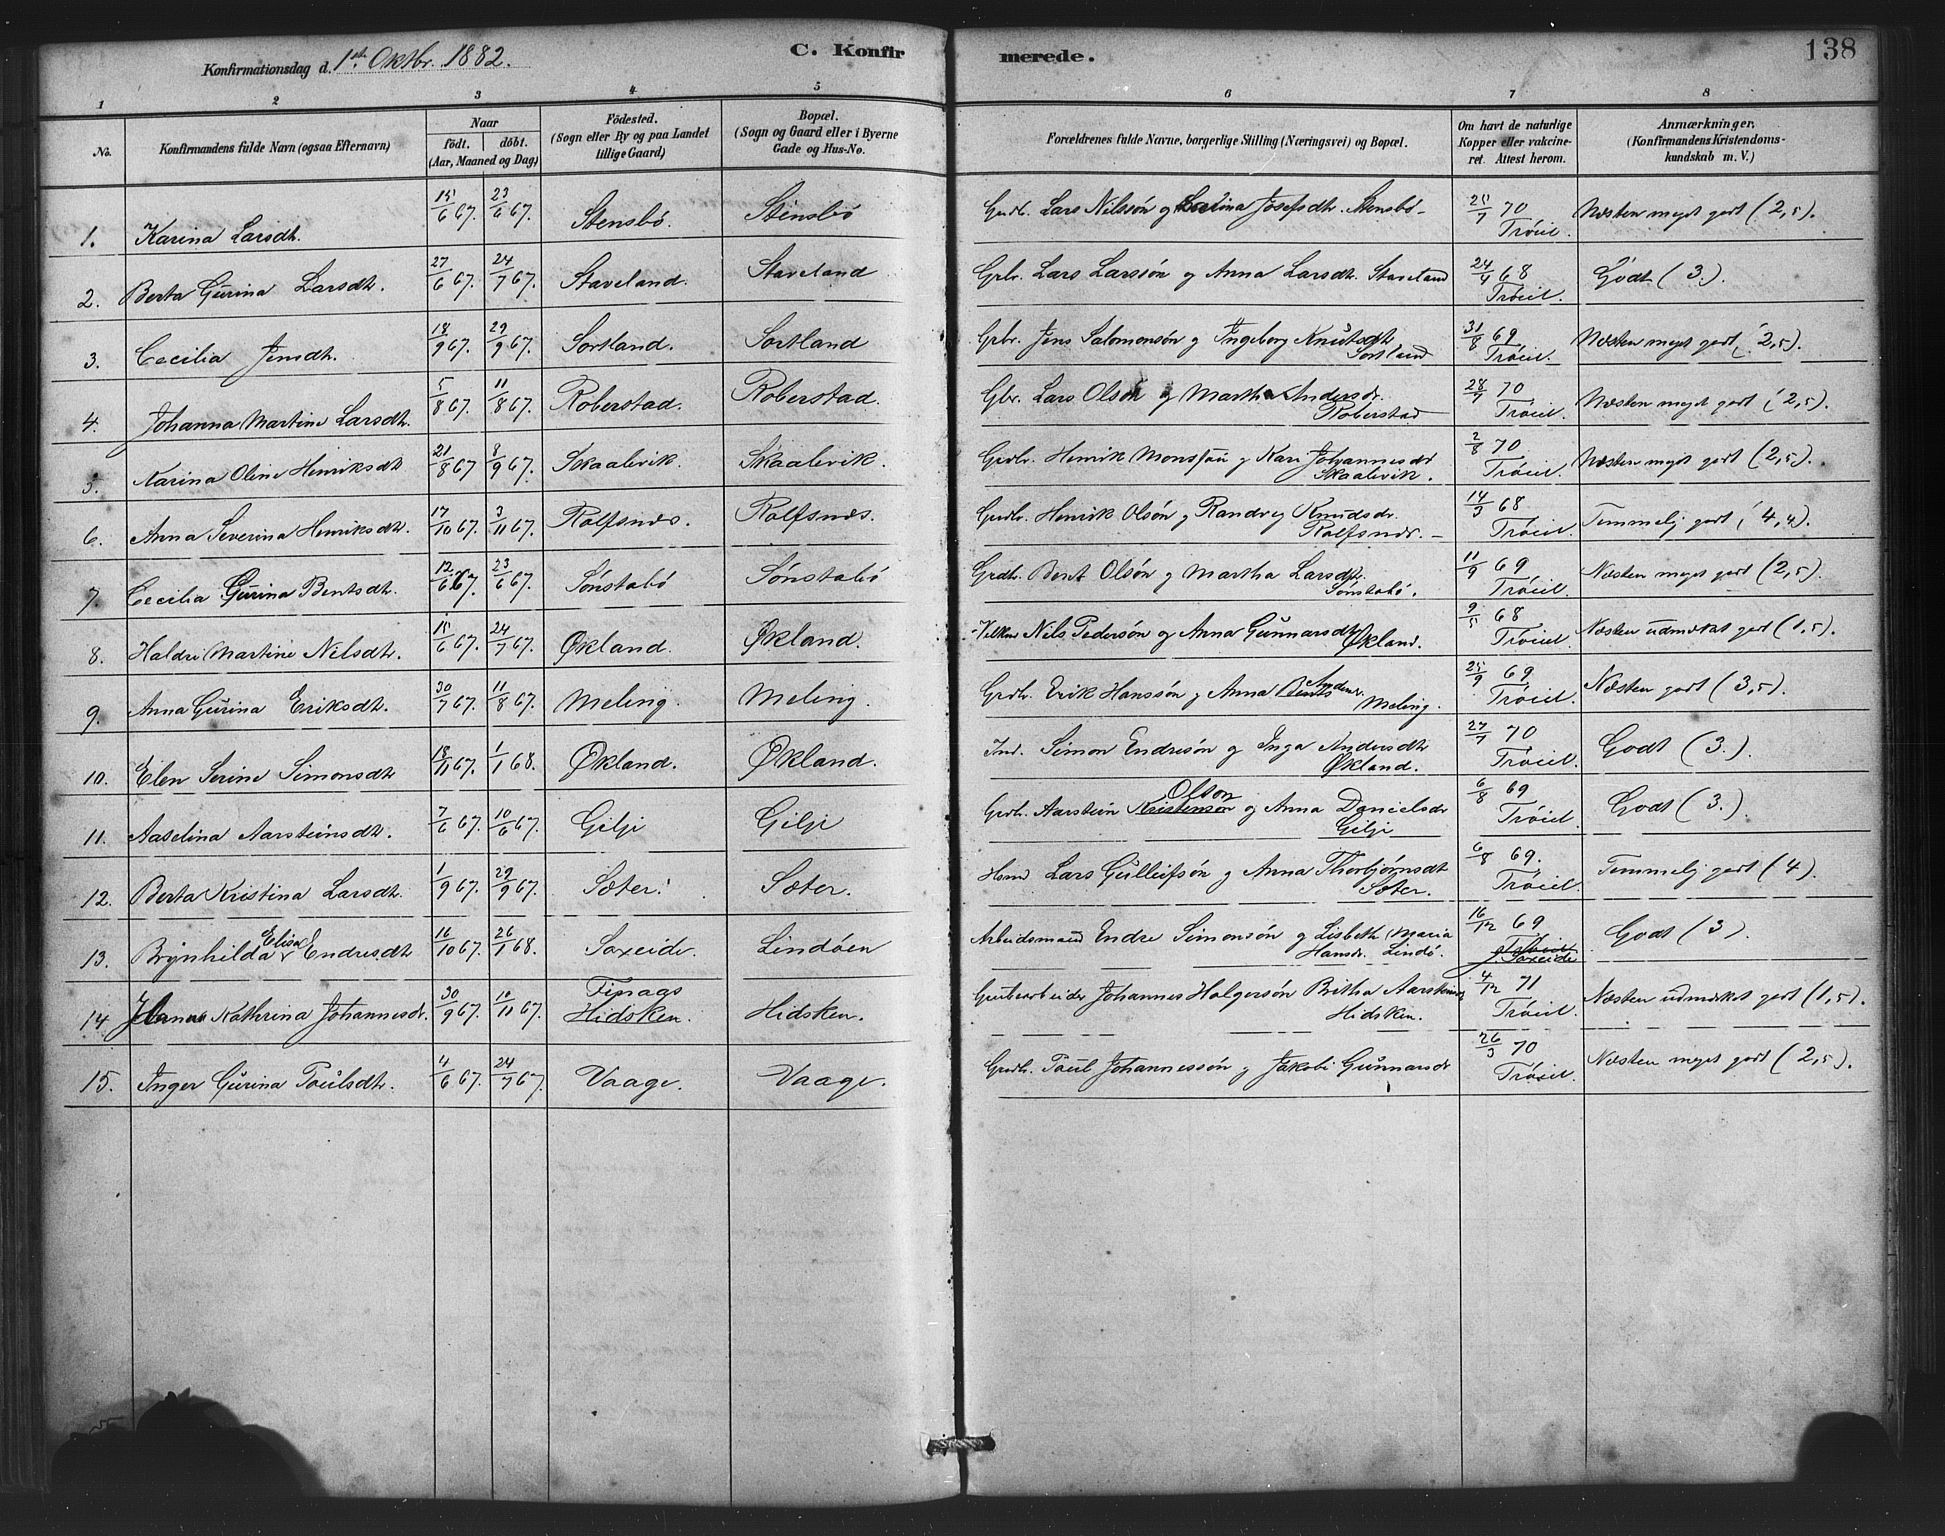 Konfirmationsdag d. 1ste Oktbr. 1882. C. Konfirmerede. 138
1 2 3 4 5 6 7 8
No. Konfirmandens fulde Navn (ogsaa Efternavn) Naar födt. döbt. (Aar, Maaned og Dag) Födested. (Sogn eller By og paa Landet tillige Gaard) Bopæl. (Sogn og Gaard eller i Byerne Gade og Hus-No. Forældrenes fulde Navne, borgerlige Stilling (Næringsvei) og Bopæl. Om havt de naturlige Kopper eller vakcineret. Attest herom. Anmærkninger. (Konfirmandens Kristendomskundskab m. V.)
1. Karina Larsdtr. 15/6 67. 23/6 67. Stensbö. Stensbö Lars Nilssön og Josefsdtr. Stensbö 25/7 70 Tröiel. Næsten meget godt (2,5).
2. Berta Gurina Larsdtr. 27/6 67. 24/7 67. Staveland. Staveland Grbr. Lars Larssön og Anna Larsdtr. Staveland 24/4 68 Tröiel. Godt (3.)
3. Cecilia Jensdtr. 18/9 67. 29/9 67. Sortland. Sortland Grbr. Jens Salomonsön og Ingeborg Knutsdtr Sortland 31/8 69 Tröiel. Næsten meget godt (2,5).
4. Johanna Martine Larsdtr. 5/8 67. 11/8 67. Roberstad. Roberstad. Gbr. Lars Olsön og Martha Andersdr. Roberstad 28/7 70 Tröiel. Næsten meget godt (2,5).
5. Karina Oline Henriksdtr 21/8 67 8/9 67. Skaalevik. Skaalevik. Grdbr. Henrik Monssön og Kari Johannesdr Skaalevik. 2/8 70 Tröiel. Næsten meget godt (2,5)
6. Anna Severina Henriksdtr. 17/10 67. 3/11 67. Rolfsnæs. Rolfsnæs. Grdbr. Henrik Olsön og Randveg Knudsdr. Rolfsnæs. 14/3 68 Tröiel. Temmelig godt (4,4).
7. Cecilia Gurina Bentsdtr. 12/6 67. 23/6 67. Sönstabö Sönstabö Grdbr. Bent Olsön og Martha Larsdtr. Sönstabö. 11/9 69 Tröiel. Næsten meget godt (2,5)
8. Haldri Martine Nilsdtr. 15/6 67. 24/7 67. Økland. Økland. Nils Pedersön og Anna Gunnarsdtr Økland. 9/5 68 Tröiel. Næsten udmærket godt (1,5).
9. Anna Gurina Eriksdtr. 30/7 67. 11/8 67. Meling. Meling. Grdbr. Erik Hanssön og Anna Andersdr. Meling. 25/9 69 Tröiel. Næsten godt (3,5)
10. Elen Serine Simonsdtr 18/11 67. 1/1 68. Økland. Økland. Ind. Simon Endresön og Inga Andersdtr Økland. 27/7 70 Tröiel. Godt (3.)
11. Aaselina Aarsteinsdtr. 7/6 67. 10/6 67. Gilje Gilje Grdbr. Aarstein Kristensön Olson og Anna Danielsdr Gilje 6/8 69 Tröiel. Godt (3.)
12. Berta Kristina Larsdtr. 1/9 67. 29/9 67. Sæter. Sæter. Hsmd Lars Gulleifsön og Anna Thorbjörnsdtr Sæter. 6/8 69. Tröiel. Temmelig godt (4)
13. Brynhilda Elisa Endresdtr 16/10 67. 26/1 68. Saxeide. Lindöen Arbeidsmand Endre Simonsön og Lisbeth Maria Hansdr. Lindö. 16/12 69 Tröiel Saxeide Godt (3)
14. Kathrina Johannesdr. 30/9 67. 10/11 67. Hidsken. Hidsken. Grubearbeider Johannes Holgersön Britha Aarsteins Hidsken. 4/12 71 Tröiel. Næsten udmærket godt (1,5).
15. Inger Gurina Poulsdtr. 4/6 67. 24/7 67. Vaage. Vaage. Grdbr. Poul Johannessön og Jakobi Gunnarsdr 26/3 70 Tröiel. Næsten meget godt (2,5)